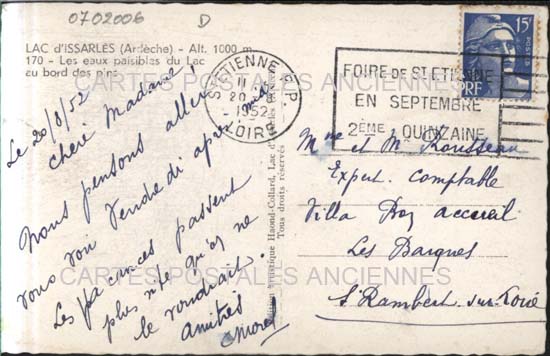 0702006 D
LAC d'ISSARLÈS (Ardèche) - Alt. 1000 m.
170 - Les eaux paisibles du Lac
au bord des pins
Le 20/8/52
Chère Madame,
Nous pensons aller
vous voir Vendredi après midi
Les vacances passent
plus vite qu'on ne
le voudrait.
Amitiés
ST ETIENNE R.P.
1952
LOIRE
FOIRE DE ST ETIENNE
EN SEPTEMBRE
2ÈME QUINZAINE
15F
RF
Tous droits réservés
Mme et M. Rousseau
Expert. Comptable
Villa Bon accueil
Les Barques
St Rambert-sur-Loire
CARTES POSTALES ANCIENNES
CARTES POSTALES ANCIENNES